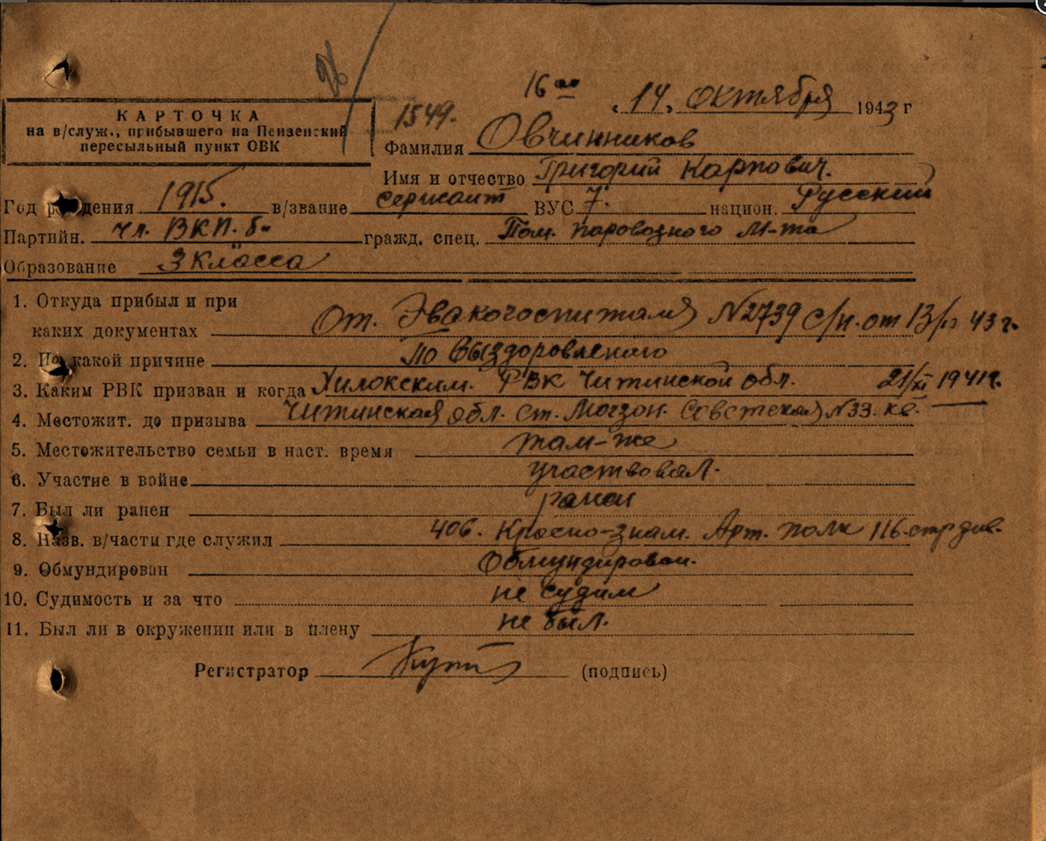 16 00
"14" октября 1943 г
КАРТОЧКА
на в/служ., прибывшего на Пензенский
пересыльный пункт ОВК
1549.
Фамилия Овчинников
Имя и отчество Григорий Карпович.
Год рождения 1915. в/звание сержант ВУС 7. национ. Русский
Партийн. чл. ВКП. б. гражд. спец. Пом. паровозного м-та
Образование 3 класса
1. Откуда прибыл и при
каких документах От. Эвакогоспиталя №2739 с/п. от 13/х 43 г.
2. По какой причине по выздоровлению
3. Каким РВК призван и когда Хилокским. РВК Читинской обл. 21/XI 1941 г.
4. Местожит. до призыва Читинская обл. ст. Могзон. Советская №33. кв. —
5. Местожительство семьи в наст. время там-же
6. Участие в войне участвовал.
7. Был ли ранен ранен
8. Назв. в/части где служил 406. Красно-знам. Арт. полк 116. стр див.
9. Обмундирован Обмундирован.
10. Судимость и за что не судим
11. Был ли в окружении или в плену не был.
Регистратор (подпись)